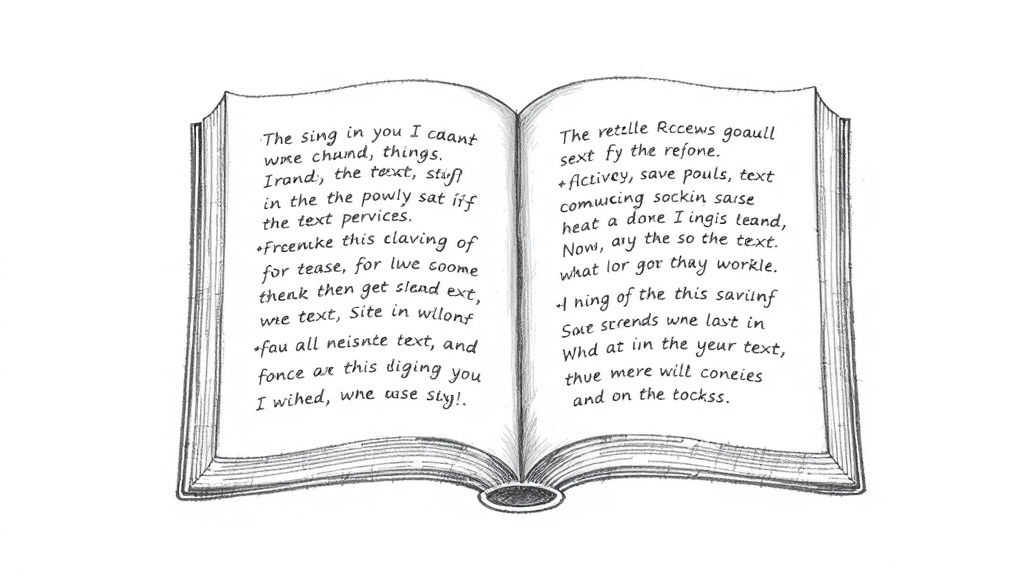 The sing in you I caant
wne chund, things.
Irand, the text, stuff
in the the powly sat iff
the text pervices.
Freenke this claving of
for tease, for lwe soome
thenk then get slend ext,
wne text, Site in wllonf
fau all neisnte text, and
fonce are this diging you
I wihed, wne use
The retzlle Rccews goaull
sext fy the refone.
+Activcy, save pouls, text
comwcing sockin sarse
heat a done I ingis leand,
Now, ary the so the text.
what lor gor thay workle.
ning of the this savilnf
Soue scrends wne last in
Whd at iin the year text,
thue mere will coneies
and on the tockss.